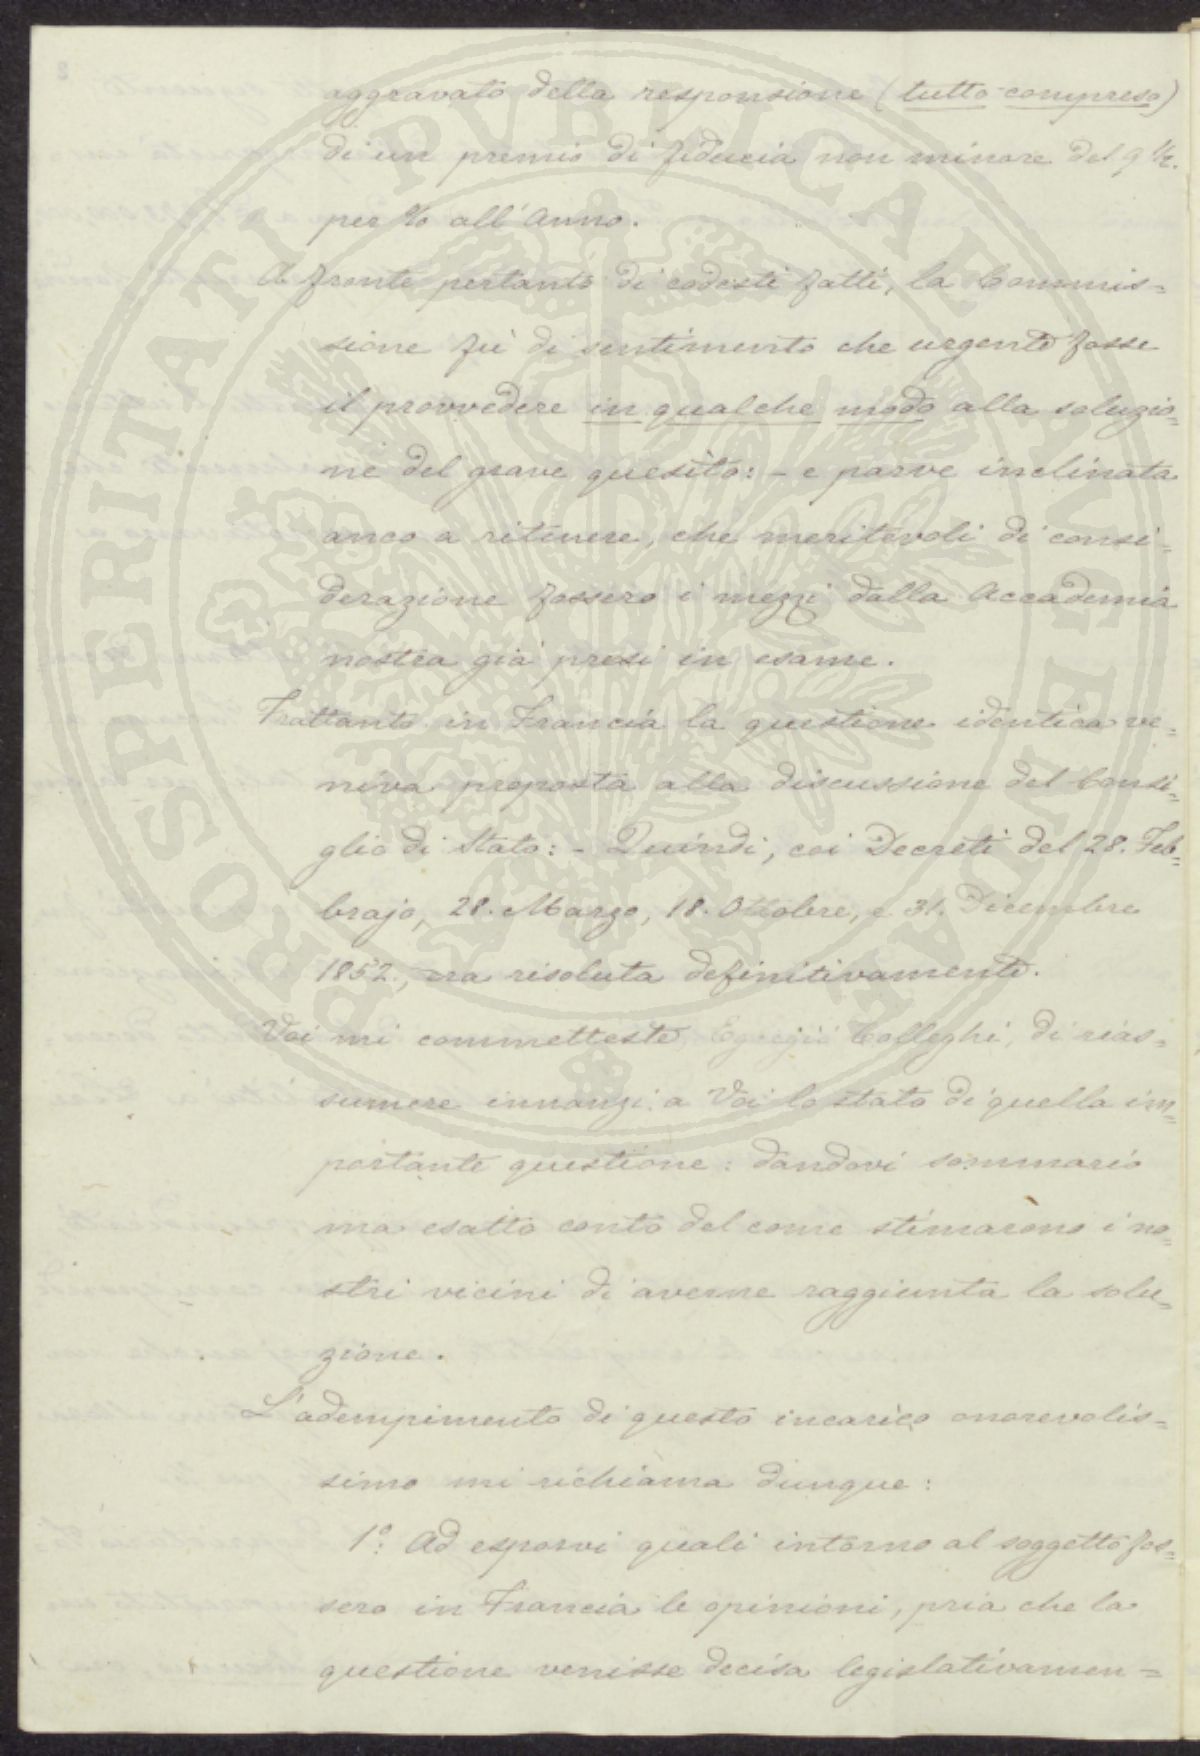 aggravato della responsione (tutto compreso)
di un premio di fiducia non minore del 9 1/2.
per % all'Anno.
A fronte pertanto di codesti fatti, la Commis=
sione fù di sentimento che urgente fosse
il provvedere in qualche modo alla soluzio=
ne del grave quesito: - e parve inclinata
anco a ritenere, che meritevoli di consi=
derazione fossero i mezzi dalla Accademia
nostra già presi in esame.
Frattanto in Francia la questione identica ve=
niva proposta alla discussione del Consi=
glio di Stato: - Quindi, coi Decreti del 28. Feb=
brajo, 28. Marzo, 18. Ottobre, e 31. Dicembre
1852., era risoluta definitivamente.
Voi mi commetteste, Egregii Colleghi, di rias=
sumere innanzi a Voi lo stato di quella im=
portante questione: dandovi sommario
ma esatto conto del come stimarono i no=
stri vicini di averne raggiunta la solu=
zione.
L'adempimento di questo incarico onorevolis=
simo mi richiama dunque:
1º: Ad esporvi quali intorno al soggetto fos=
sero in Francia le opinioni, pria che la
questione venisse decisa legislativamen=
PROSPERITATI PVBLICAE AVGENDAE